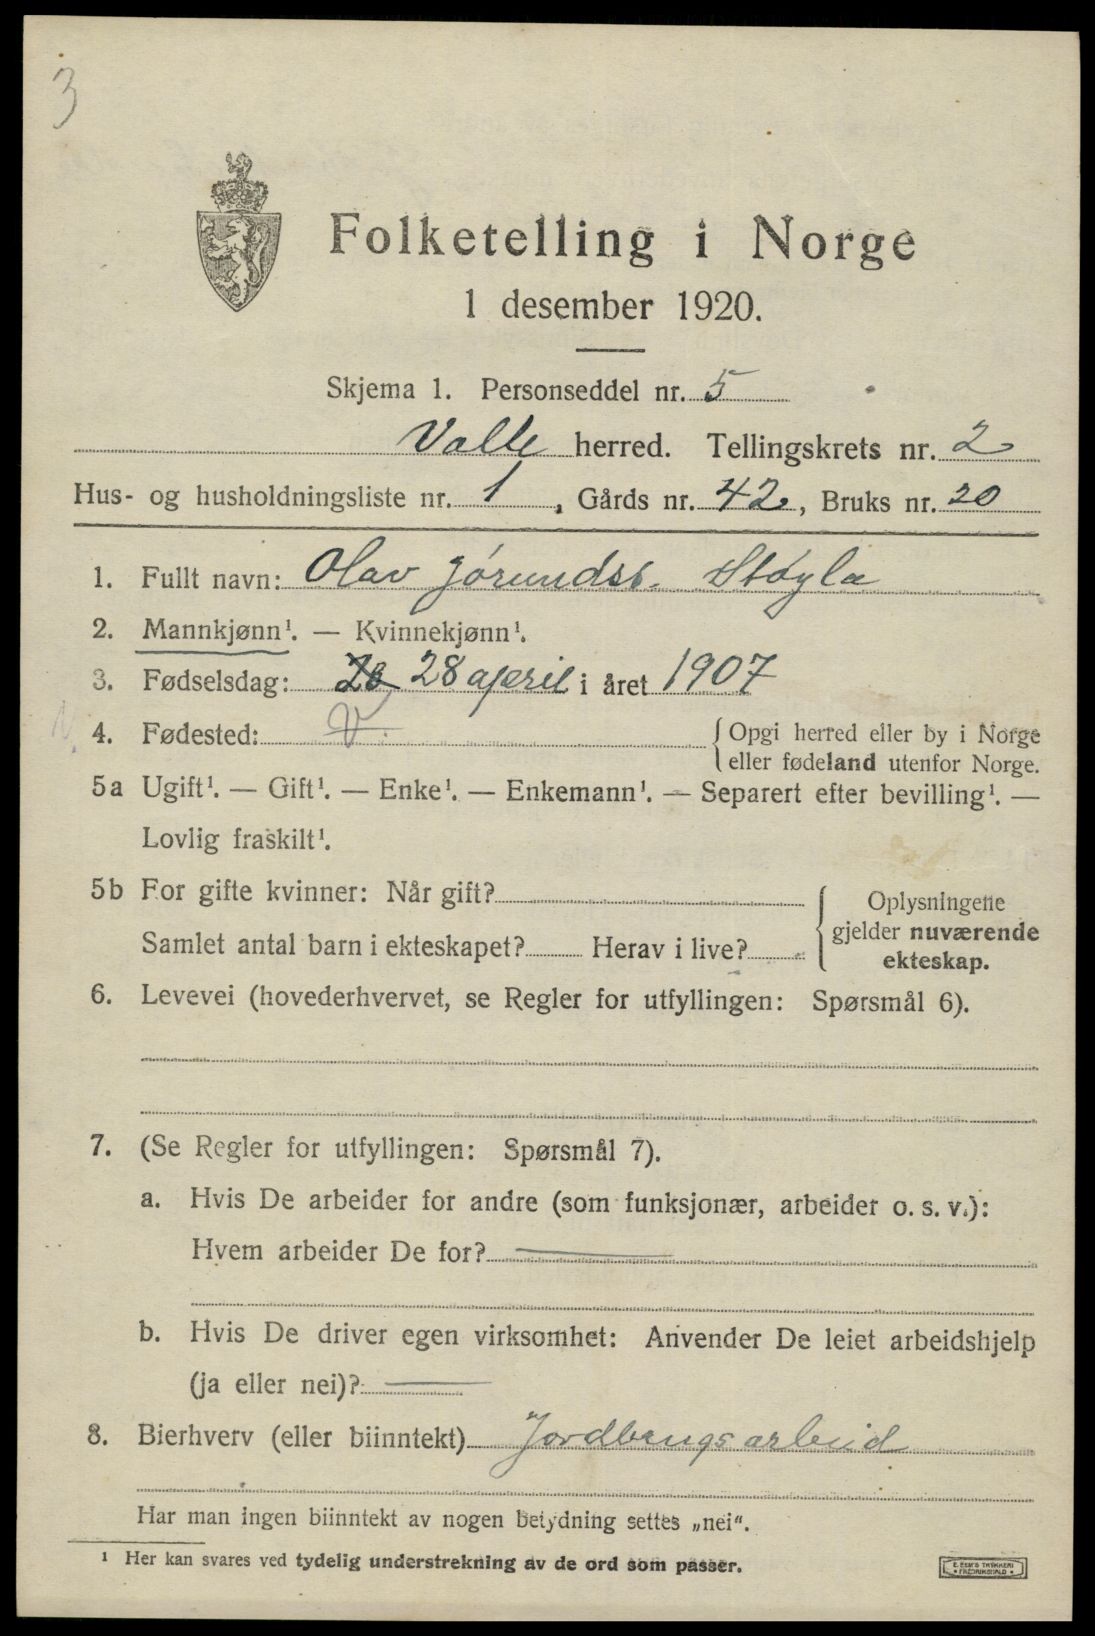 3
Folketelling i Norge
1 desember 1920.
Skjema 1. Personseddel nr. 5
Valle herred. Tellingskrets nr. 2
Hus- og husholdningsliste nr. 1, Gårds nr. 42, Bruks nr. 20
1. Fullt navn: Olav Jórundss. Stóyla
2. Mannkjønn¹. — Kvinnekjønn¹.
3. Fødselsdag: 28 april i året 1907
4. Fødested: V. {Opgi herred eller by i Norge
eller fødeland utenfor Norge.
5a Ugift¹. — Gift¹. — Enke¹. — Enkemann¹. — Separert efter bevilling¹. —
Lovlig fraskilt¹.
5b For gifte kvinner: Når gift? { Oplysningene
gjelder nuværende
Samlet antal barn i ekteskapet? Herav i live? ekteskap.
6. Levevei (hovederhvervet, se Regler for utfyllingen: Spørsmål 6).
7. (Se Regler for utfyllingen: Spørsmål 7).
a. Hvis De arbeider for andre (som funksjonær, arbeider o. s. v.):
Hvem arbeider De for? —
b. Hvis De driver egen virksomhet: Anvender De leiet arbeidshjelp
(ja eller nei)? —
8. Bierhverv (eller biinntekt) Jordbrugsarbeid
Har man ingen biinntekt av nogen betydning settes „nei“.
¹ Her kan svares ved tydelig understrekning av de ord som passer.